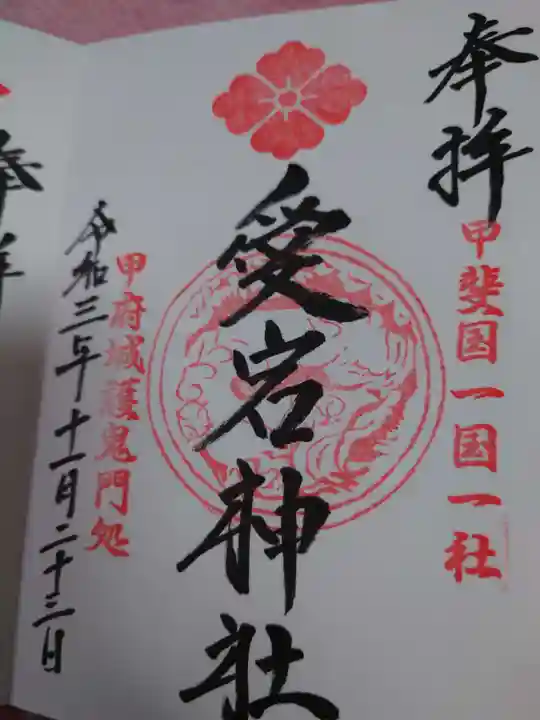 奉拝
甲斐国一国一社
愛宕神社
甲府城護鬼門処
令和三年十一月二十三日
奉拝